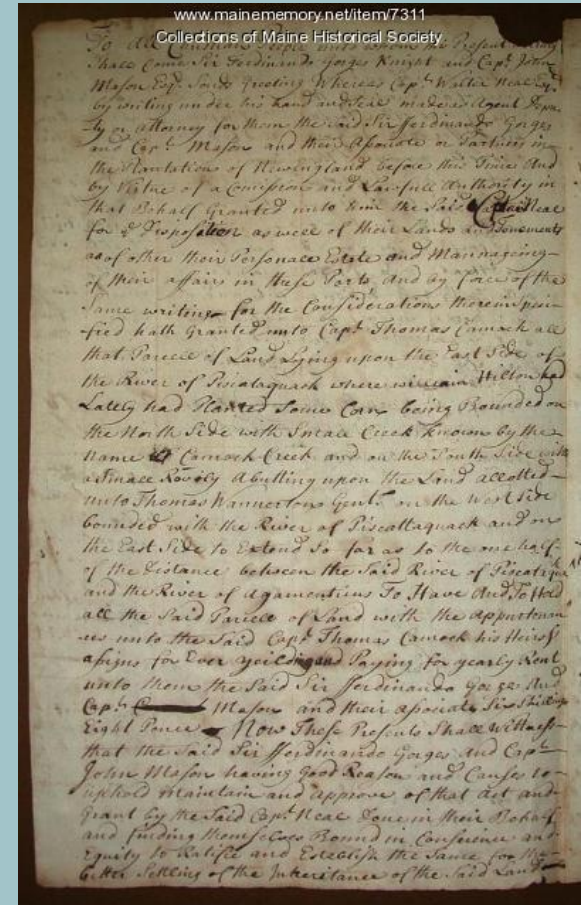 www.mainememory.net/item/7311
Collections of Maine Historical Society
To All Christian People unto whom the Present
Shall Come Sir Ferdinando Gorges Knight and Capt John
Mason Esqr Sends Greeting Whereas Capt Walter Neal Esqr
by writing under his hand and Seal made as Agent Depu
ty or attorney for them the said Sir Fferdinando Gorges
and Capt Mason and their Asociate or Partners in
the Plantations of Newingland before this Time And
by Virtue of a Comission and Lawfull Authority in
that Behalf Granted unto him the Said Captain Neal
for ye Disposition as well of their Lands and Tenements
as of other their Personall Estate and Mannageing
of their affairs in these Parts And by force of the
Same writing for the Considerations therein Speci
fied hath Granted unto Capt Thomas Camock all
that Parcell of Land Lying upon the East Side of
the River of Piscataquack where william Hilton had
Lately had Planted Some Corn being Bounded on
the North Side with Small Creek Known by the
name Camock Creek and on the South Side with
a Smale Abutting upon the Land allotted
unto Thomas Wannerton Gent on the West Side
bounded with the River of Piscattaquack and on
the East Side to Extend So far as to the one half
of the Distance between the Said River of
and the River of Agamenticus To Have And To Hold
all the Said Parcell of Land with the Appurtenan
ces unto the Said Capt Thomas Camock his Heirs &
asigns for Ever yeilding and Paying for yearly Rent
unto them the Said Sir Fferdinando Gorges And
Capt Mason and their Asociate Six Shillings
Eight Pence Now These Presents Shall Wittness
that the Said Sir Fferdinando Gorges And Capt
John Mason having Good Reason and Causes to
uphold Maintain and Approve of that Act and
Grant by the Said Capt Neal Done in their Behalf
and finding themselves Bound in Conscience and
Equity to Ratifie and Establish the Same for the
better Settling of the Inheritance of the Said Land